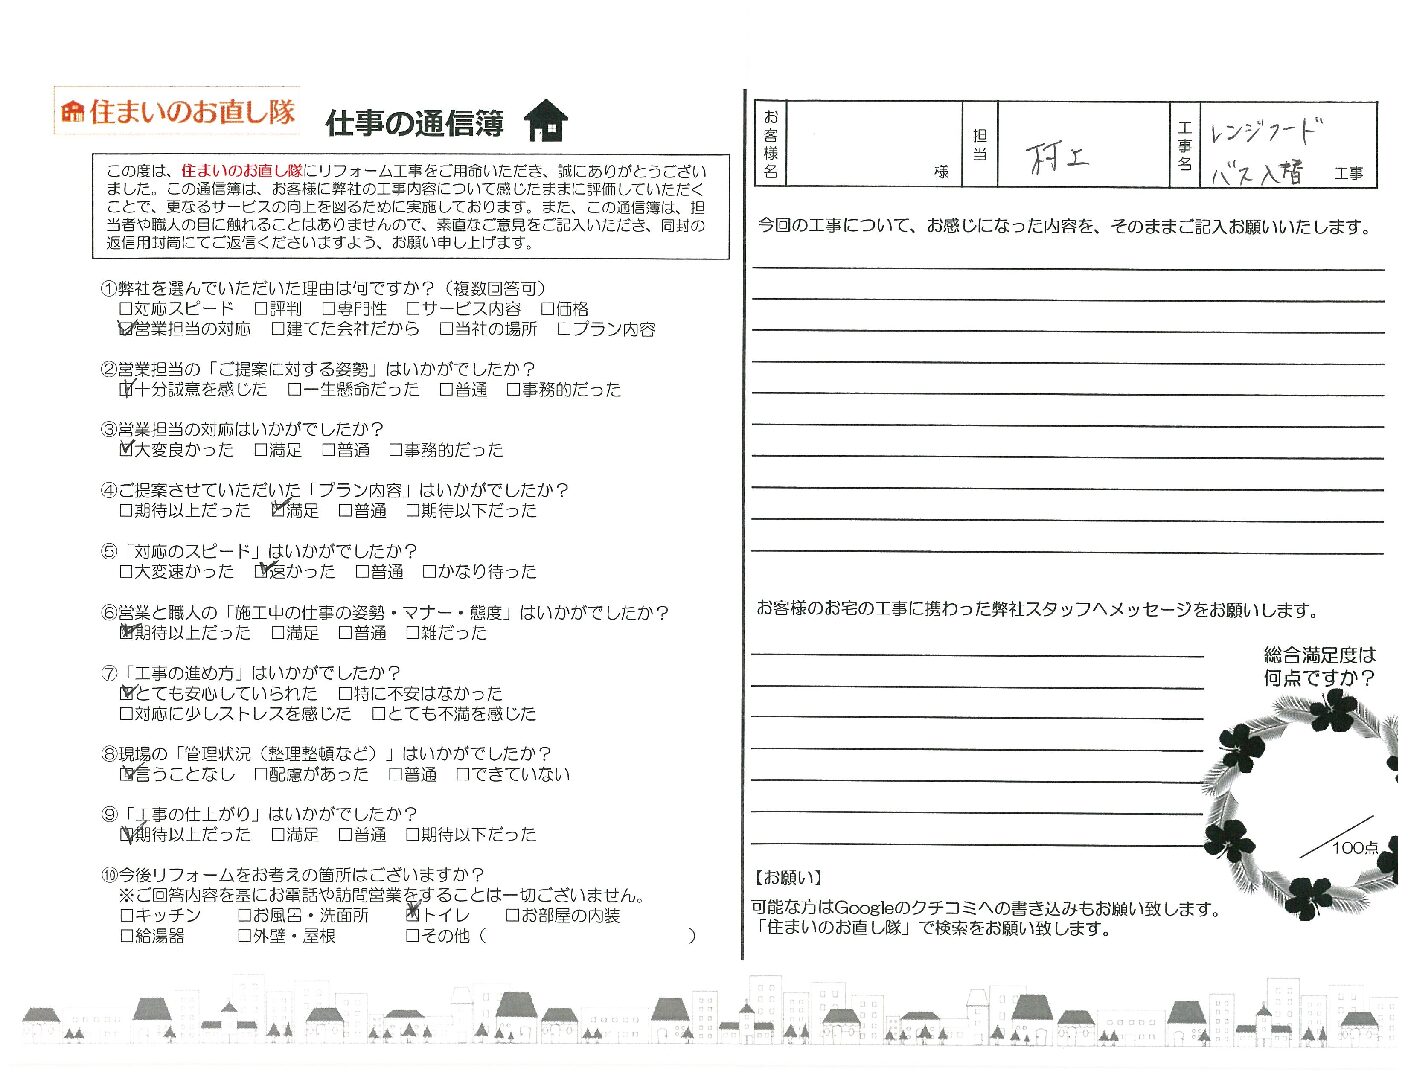 住まいのお直し隊
仕事の通信簿
この度は、住まいのお直し隊にリフォーム工事をご用命いただき、誠にありがとうござい
ました。この通信簿は、お客様に弊社の工事内容について感じたままに評価していただく
ことで、更なるサービスの向上を図るために実施しております。また、この通信簿は、担
当者や職人の目に触れることはありませんので、素直なご意見をご記入いただき、同封の
返信用封筒にてご返信くださいますよう、お願い申し上げます。
①弊社を選んでいただいた理由は何ですか？（複数回答可）
□対応スピード □評判 □専門性 □サービス内容 □価格
☑営業担当の対応 □建てた会社だから □当社の場所 □プラン内容
②営業担当の「ご提案に対する姿勢」はいかがでしたか？
☑十分誠意を感じた □一生懸命だった □普通 □事務的だった
③営業担当の対応はいかがでしたか？
☑大変良かった □満足 □普通 □事務的だった
④ご提案させていただいた「プラン内容」はいかがでしたか？
□期待以上だった ☑満足 □普通 □期待以下だった
⑤「対応のスピード」はいかがでしたか？
□大変速かった ☑速かった □普通 □かなり待った
⑥営業と職人の「施工中の仕事の姿勢・マナー・態度」はいかがでしたか？
☑期待以上だった □満足 □普通 □雑だった
⑦「工事の進め方」はいかがでしたか？
☑とても安心していられた □特に不安はなかった
□対応に少しストレスを感じた □とても不満を感じた
⑧現場の「管理状況（整理整頓など）」はいかがでしたか？
☑言うことなし □配慮があった □普通 □できていない
⑨「工事の仕上がり」はいかがでしたか？
☑期待以上だった □満足 □普通 □期待以下だった
⑩今後リフォームをお考えの箇所はございますか？
※ご回答内容を基にお電話や訪問営業をすることは一切ございません。
□キッチン □お風呂・洗面所 ☑トイレ □お部屋の内装
□給湯器 □外壁・屋根 □その他（ ）
お客様名 様 担当 村上 工事名 レンジフード
バス入替 工事
今回の工事について、お感じになった内容を、そのままご記入お願いいたします。
お客様のお宅の工事に携わった弊社スタッフへメッセージをお願いします。
総合満足度は
何点ですか？
／100点
【お願い】
可能な方はGoogleのクチコミへの書き込みもお願い致します。
「住まいのお直し隊」で検索をお願い致します。